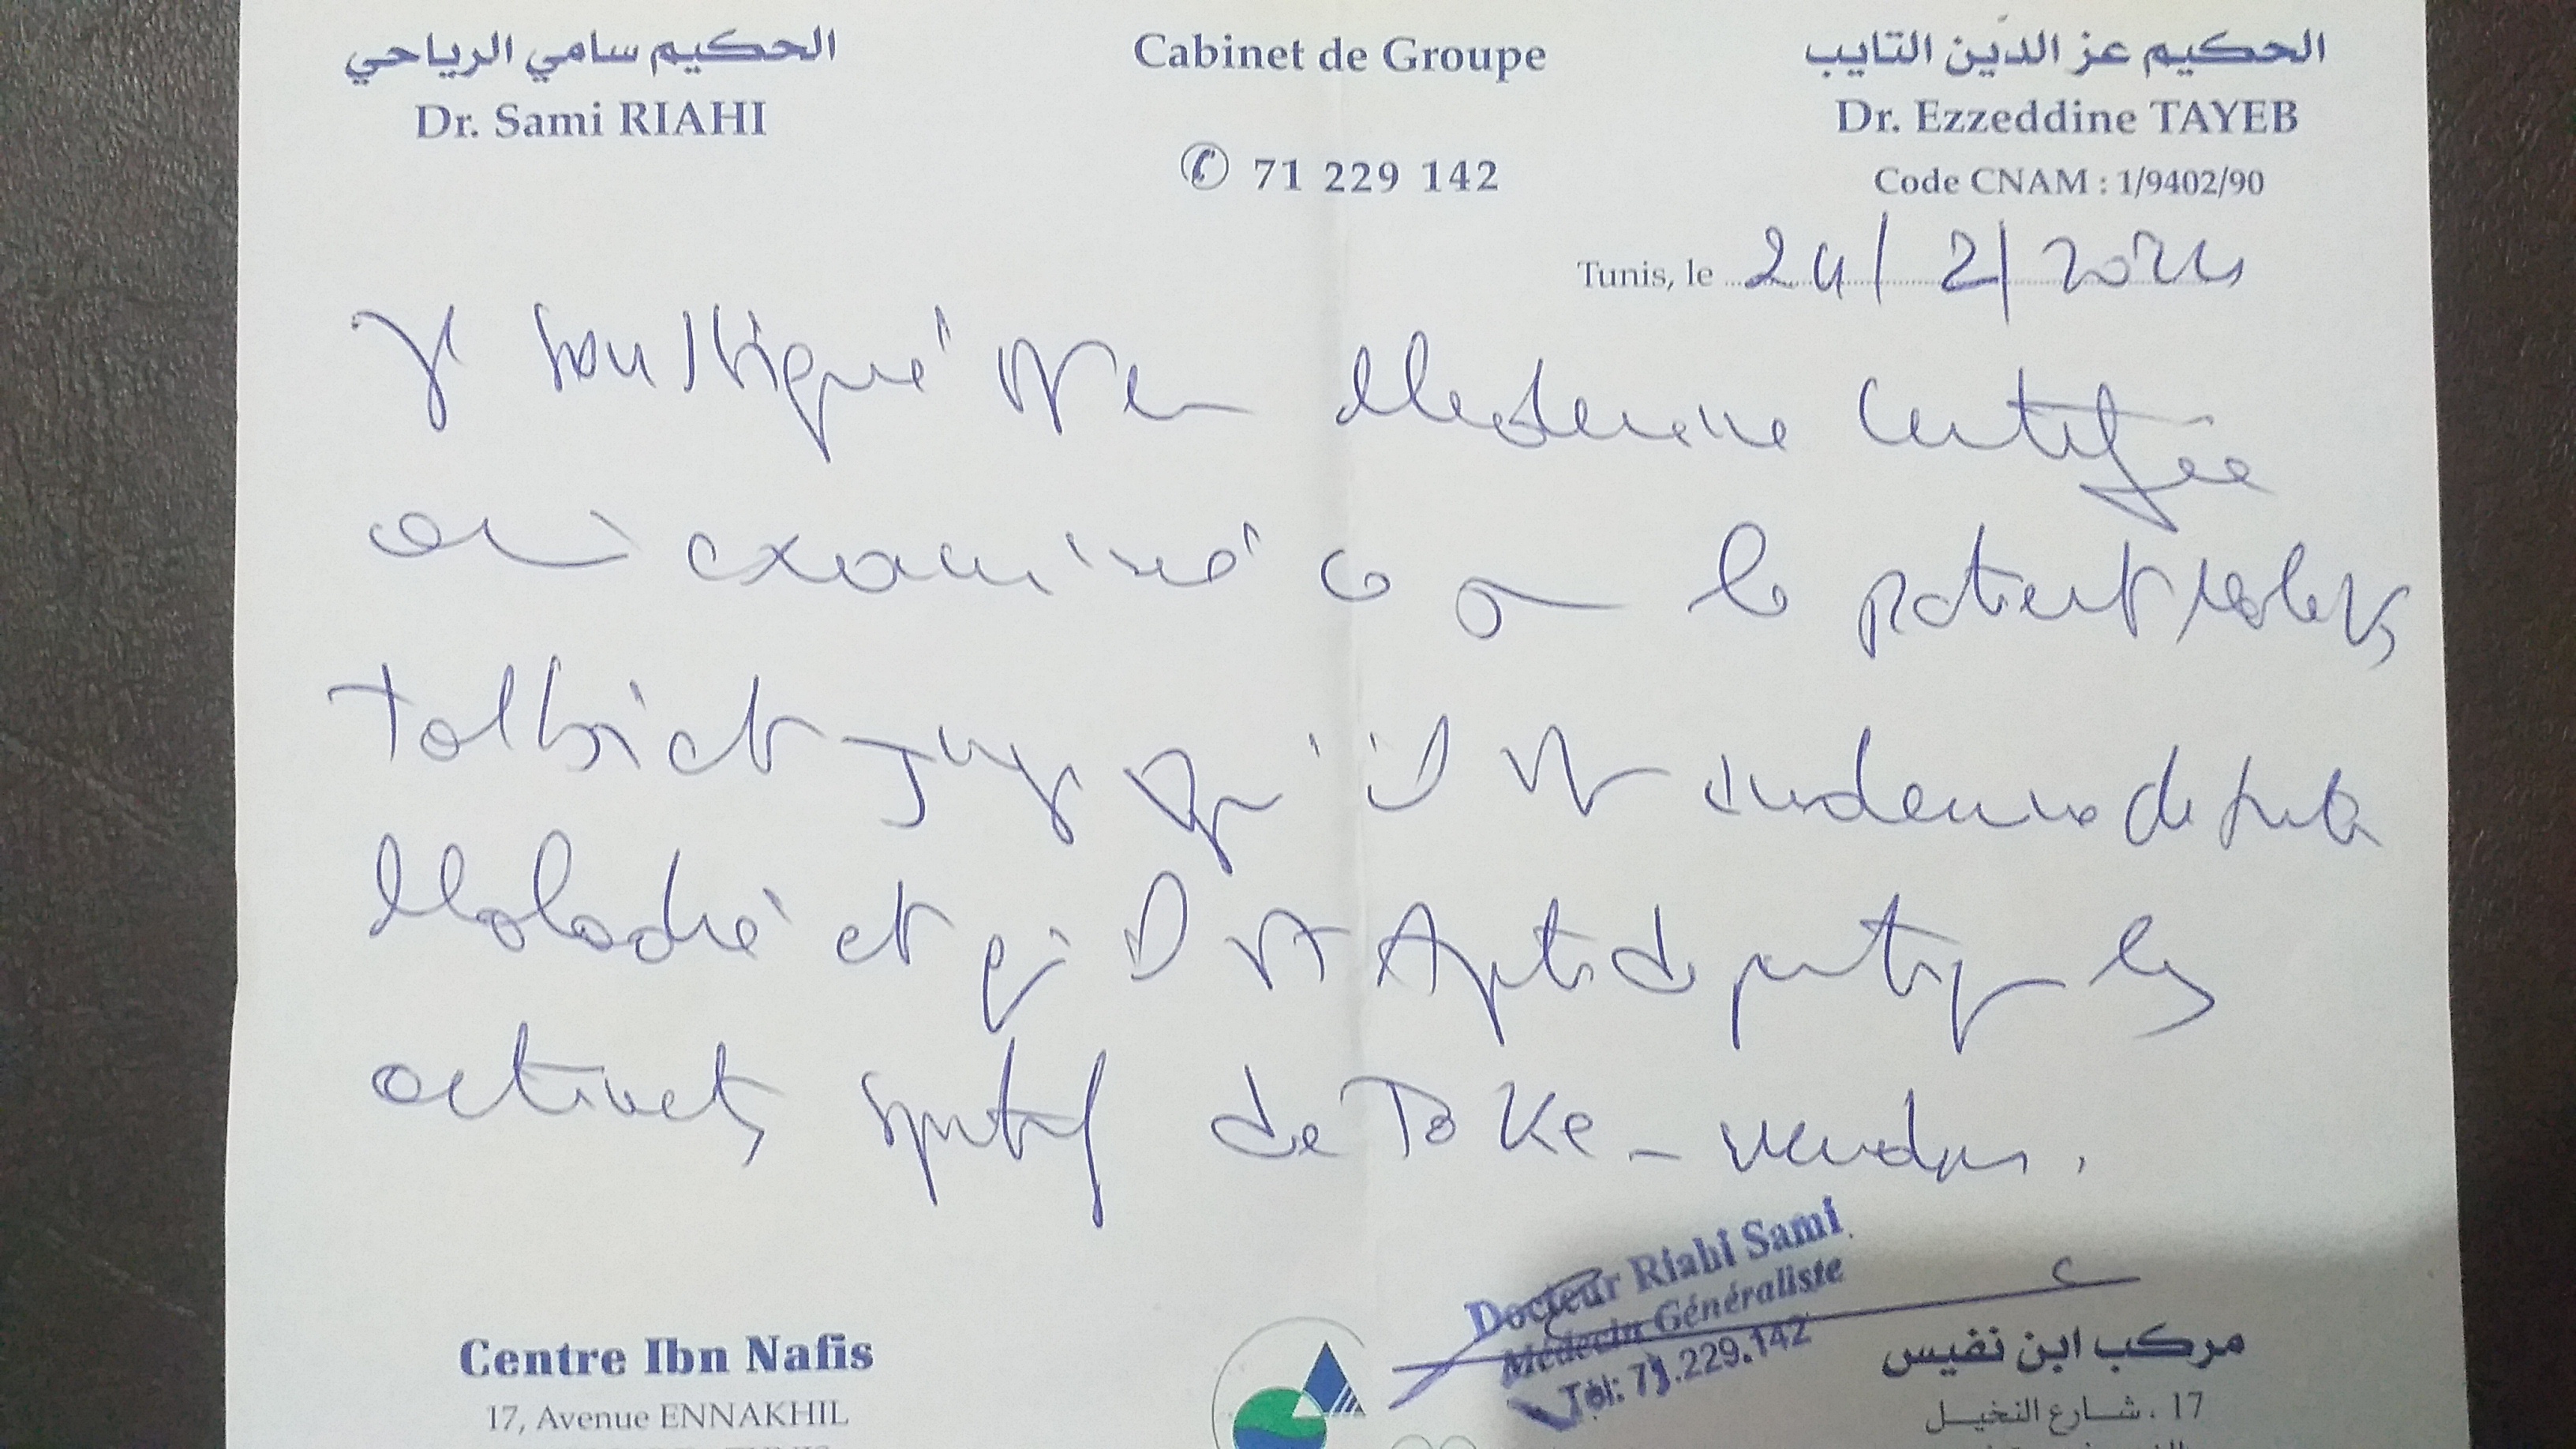 الحكيم سامي الرياحي
Dr. Sami RIAHI
Cabinet de Groupe
✆ 71 229 142
الحكيم عز الدين التايب
Dr. Ezzeddine TAYEB
Code CNAM : 1/9402/90
Tunis, le 24/2/2024
Je soussigné Dr en Medecine Certifie
avoir examiné ce jour le patient
Talbi et juge qu'il est indemne de toute
Maladie et qu'il est Apte de pratiquer les
activités sportif de
Docteur Riahi Sami
Médecin Généraliste
Tél: 71.229.142
Centre Ibn Nafis
17, Avenue ENNAKHIL
مركب ابن نفيس
17 ، شارع النخيل